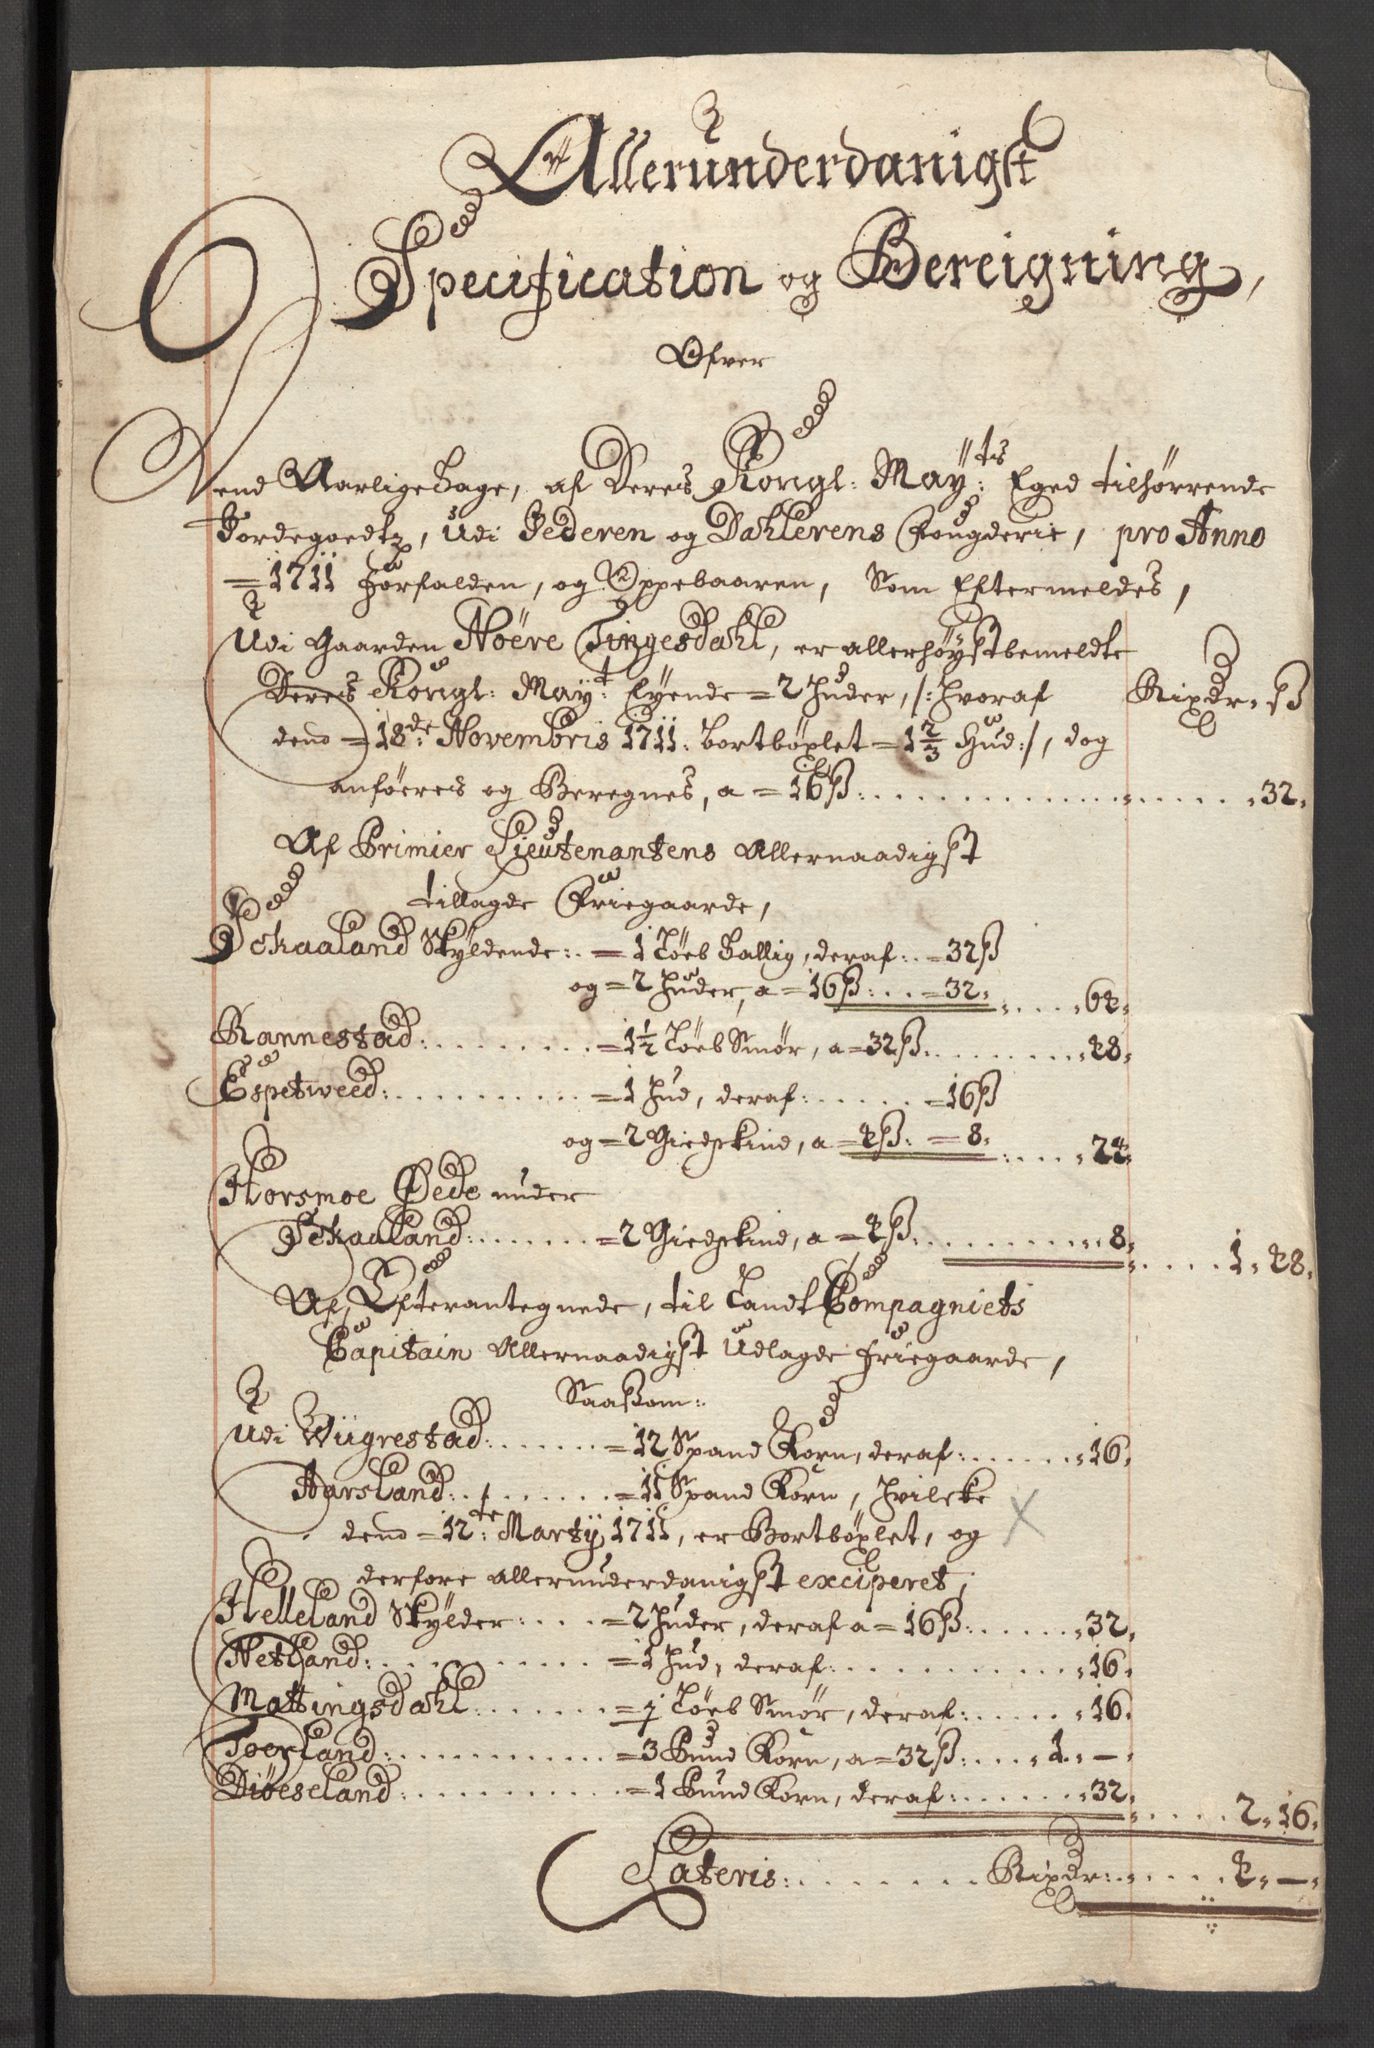 Allerunderdanigst
Specification og Bereigning,
Ofver
end Aarlige Tage, af Deres Kongl: Maÿ:ts Eged tilhørrende
Jordegoedtz, Udi Jederen og Dahlerens Fougderie, pro Anno
=1711 forfalden, og Oppebaaren, Som Eftermeldes,
Udi Gaarden Nöere Tingesdahl, er allerhøÿstbemeldte
Deres Kongl: Maÿ:t Eÿende =2 Huder, /: hvoraf Rixdr. ß
dend =18de: Novembris 1711: bortböxlet =1 2/3 Hud :/, dog
anföeres og Beregnes, a =16ß: . . . . 32.
Af Primier Lieutenantens Allernaadigst
tillagde Friegaarde,
Schaaland Skÿldende: . =1 Löeb Tallig, deraf: . =32ß
og =2 Huder, a =16ß: . . =32. . . . 64.
Rannestad: . . . . =1 1/2 Löeb Smør, a =32ß. . . . 48.
Espetweed: . . . . =1 Hud, deraf: . . . . =16ß
og =2 Giedskind, a =4ß: =8. . . . 24.
Horsmoe Øede under
Schaaland: . . . . =2 Giedskind, a =4ß. . . . 8. . . . 1. 48.
Af Efterantegnede, til Land Compagniets
Capitain Allernaadigst Udlagde Friegaarde,
Saaßom:
Udi Wiigrestad: . . . . =12 Spand Korn, deraf: . . . . 16.
Aarsland: . . . . =11 Spand Korn, hvilcke
dend =12te: Martÿ 1711, er Bortböxlet, og
derfore allerunderdanigst exciperet,
Helleland Skÿlder: . . . =2 Huder, deraf a =16ß: . . . . 32.
Netland: . . . . =1 Hud, deraf: . . . . 16.
Mattingsdahl: . . . . =1/2 Löeb Smør, deraf: . . . . 16.
Toerland: . . . . =3 Pund Korn, a =32ß: . . . 1. —.
Diöeseland: . . . . =1 Pund Korn, deraf: . . . . 32. . . . 2. 16.
Lateris: . . . . Rixdr: . . . . 4. —.